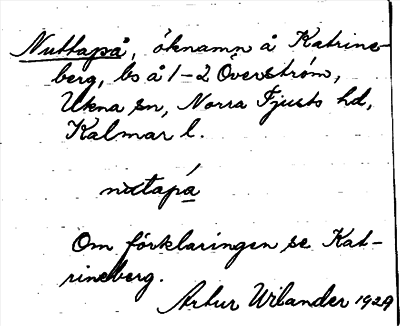 Nuttapå, öknamn å Katrine-
berg, bs å 1-2 Överström,
Ukna sn, Norra Tjusts hd,
Kalmar l.
nutapá
Om förklaringen se Kat-
rineberg.
Artur Wilander 1929